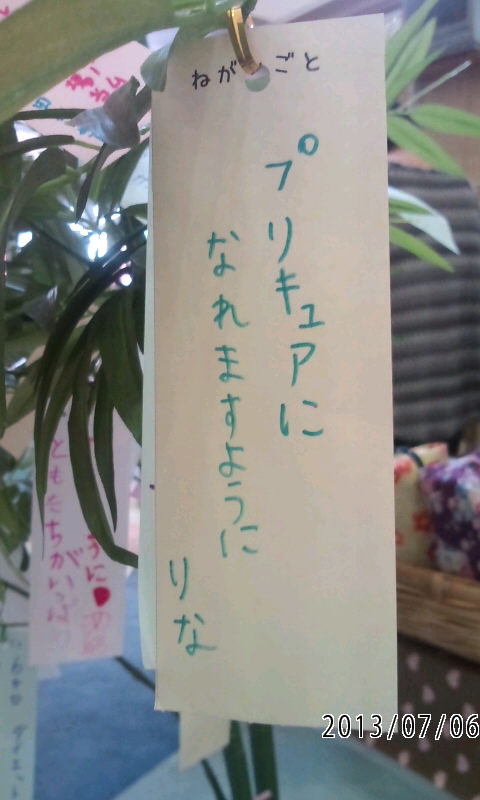 ねがいごと
プリキュアに
なれますように
りな
ともだちがいっぱ
うに
ダイエット
2013/07/06